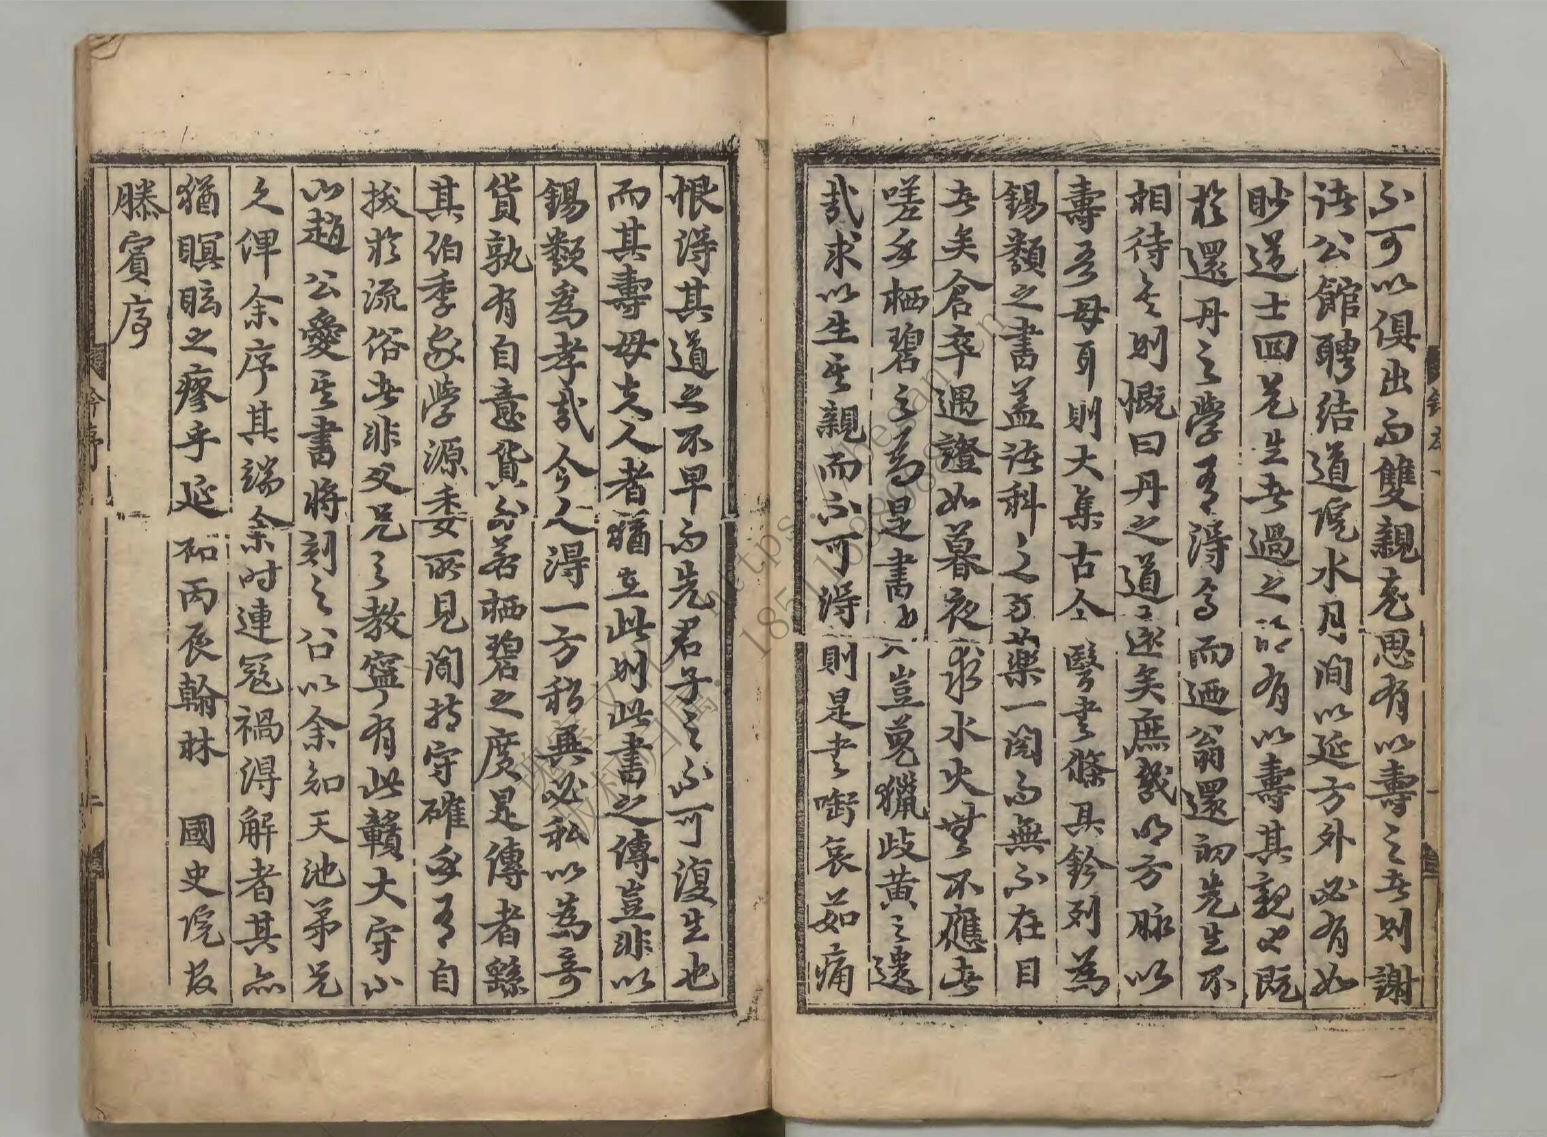 不可以俱出而雙親老思有以壽之者則謝
諸公館聘結道院水月間以延方外必有如
眇道士回先生者過之以有以壽其親也既
於還丹之學有得焉而迺翁還初先生不
相待矣則慨曰丹之道遠矣庶幾以方脉以
壽吾母耳則大集古今醫書條具鈐列為
錫類之書蓋諸科之方藥一閱而無不在目
者矣倉卒遇證如暮夜求水火無不應者
嗟乎栖碧之為是書也豈蒐獵歧黃之遺
哉求以生其親而不可得則是書噙哀茹痛
恨得其道之不早而先君子之不可復生也
而其壽母夫人者猶在此則此書之傳豈非以
錫類為孝哉今人得一方稍異必私以為奇
貨孰有自意貨若栖碧之度是傳者繇
其伯季家學源委所見聞持守確乎有自
拔於流俗者非父兄之教寧有此贛太守小
山趙公愛其書將刻之公以余知天池弟兄
之俾余序其端余時連冠禍得解者其亦
猶瞑眩之瘳乎延祐丙辰翰林　國史院
滕賓序